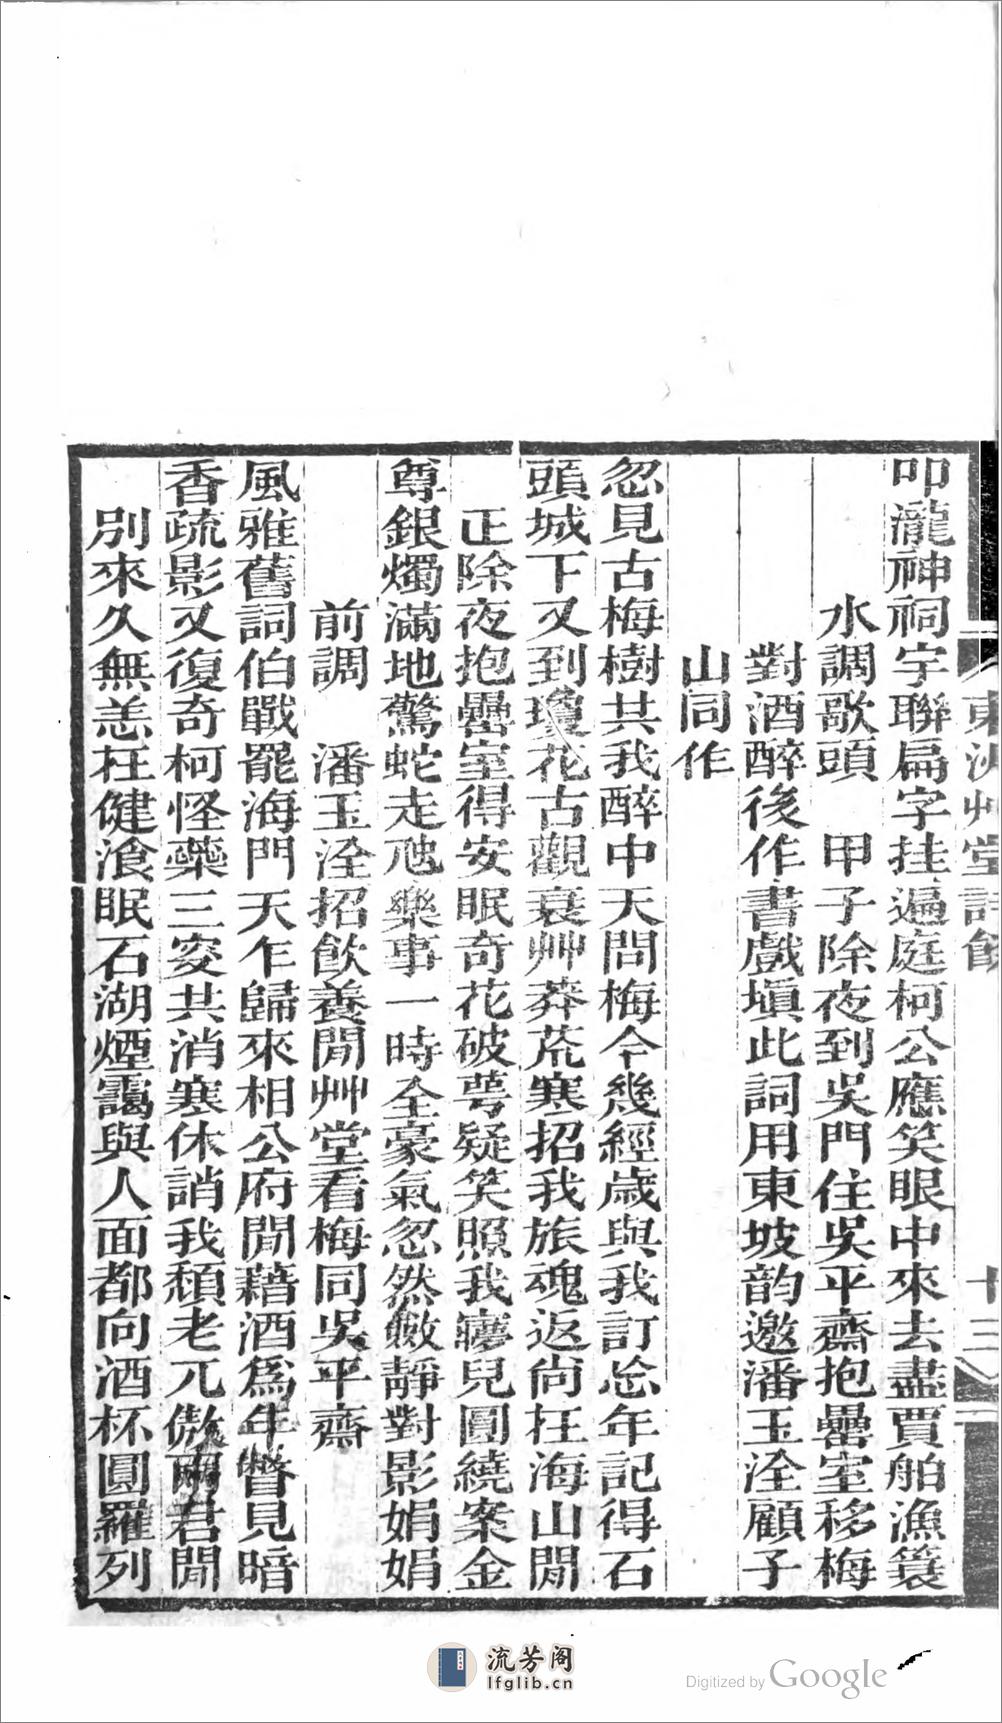 東洲艸堂詩餘
十三
叩瀧神祠宇聯扁字挂遍庭柯公應笑眼中來去盡賈舶漁簑
水調歌頭　甲子除夜到吳門住吳平齋抱罍室移梅
對酒醉後作書戲塡此詞用東坡韵邀潘玉泩顧子
山同作
忽見古梅樹共我醉中天問梅今幾經歲與我訂忩年記得石
頭城下又到瓊花古觀衰艸莽荒寒招我旅魂返尙在海山閒
正除夜抱罍室得安眠奇花破萼疑笑照我寱兒圓繞案金
尊銀燭滿地驚蛇走虺樂事一時全豪氣忽然斂靜對影娟娟
前調　潘玉泩招飮養閒艸堂看梅同吳平齋
風雅舊詞伯戰罷海門天乍歸來相公府閒藉酒爲年瞥見暗
香疏影又復奇柯怪蘂三姿共消寒休誚我頹老兀傲兩君閒
別來久無恙在健飡眠石湖煙靄與人面都向酒杯圓羅列
流芳阁
lfglib.cn
Digitized by Google